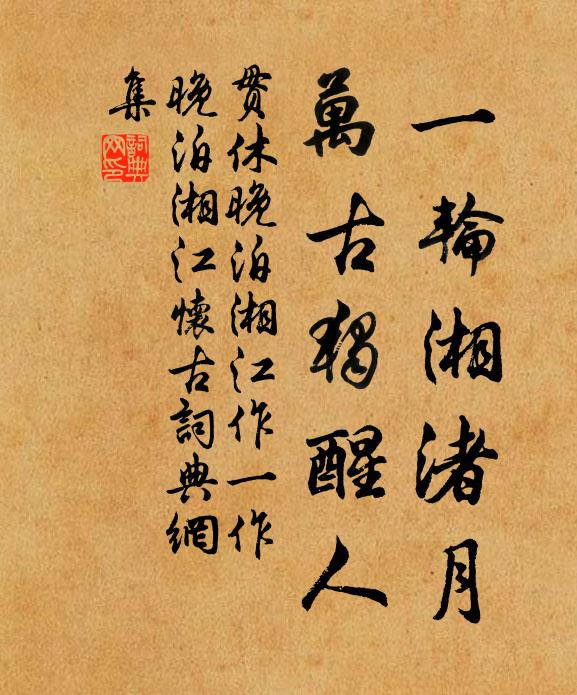 一輪湘渚月
萬古獨醒人
貫休晚泊湘江作一作
晚泊湘江懷古詞典網
集
詞典网印